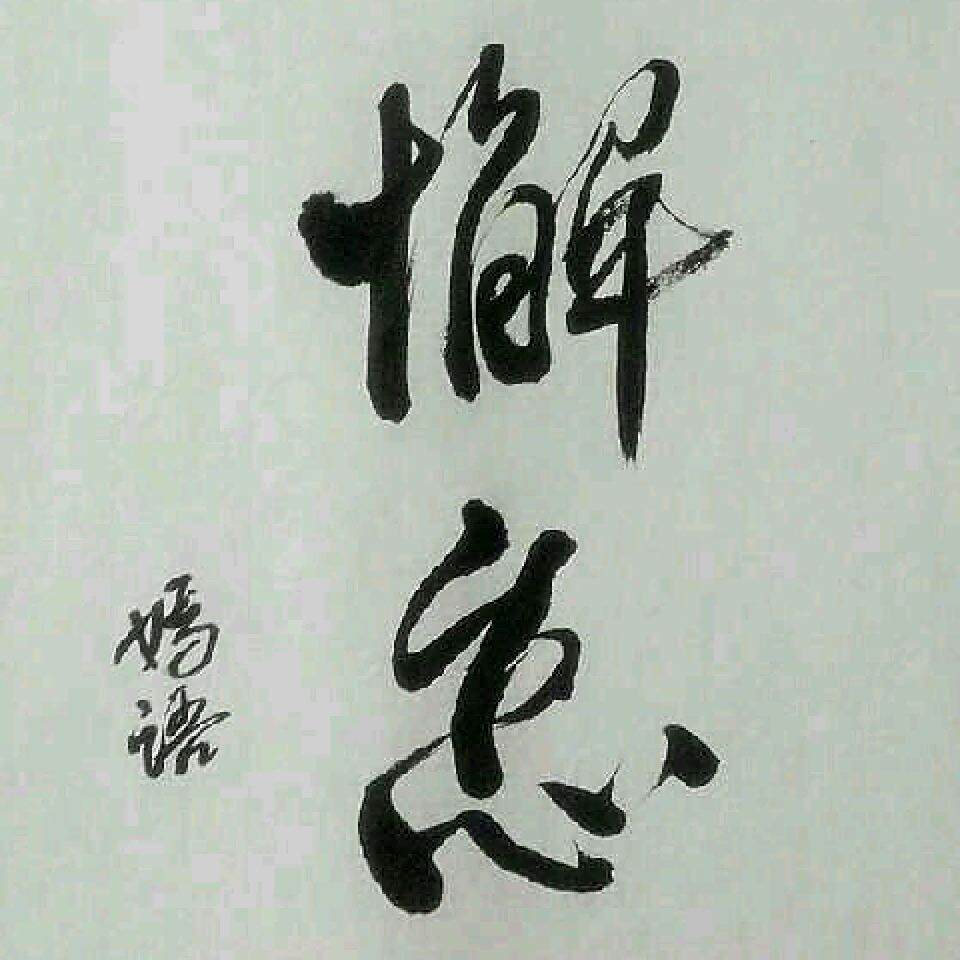 懈怠
嫣语